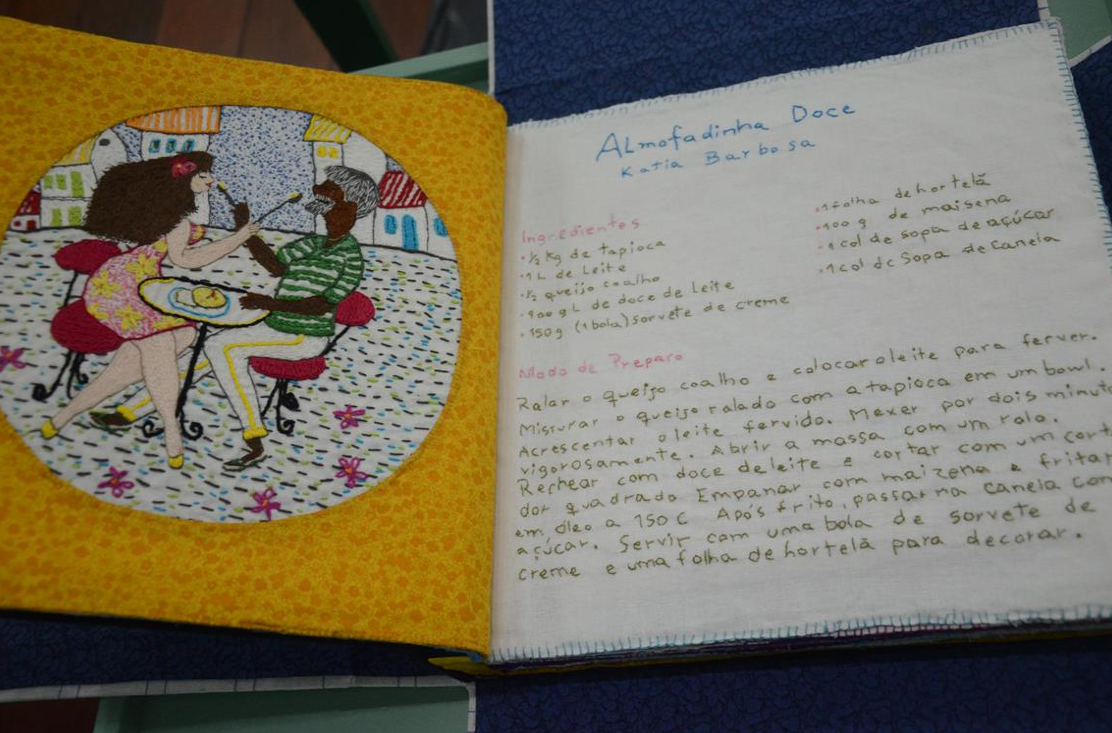 Almofadinha Doce
Katia Barbosa
Ingredientes
• ½ Kg de tapioca
• 1 L de Leite
• ½ queijo coalho
• 100 g L de doce de leite
• 150g (1 bola) sorvete de creme
• 1 folha de hortelã
• 100 g de maisena
• 1 col de sopa de açúcar
• 1 col de sopa de canela
Modo de Preparo
Ralar o queijo coalho e colocar o leite para ferver.
Misturar o queijo ralado com a tapioca em um bowl.
Acrescentar o leite fervido. Mexer por dois minut
vigorosamente. Abrir a massa com um rolo.
Rechear com doce de leite e cortar com um cort
dor quadrado Empanar com maizena e fritar
em óleo a 150 C Após frito, passar na canela com
açúcar. Servir com uma bola de sorvete de
creme e uma folha de hortelã para decorar.